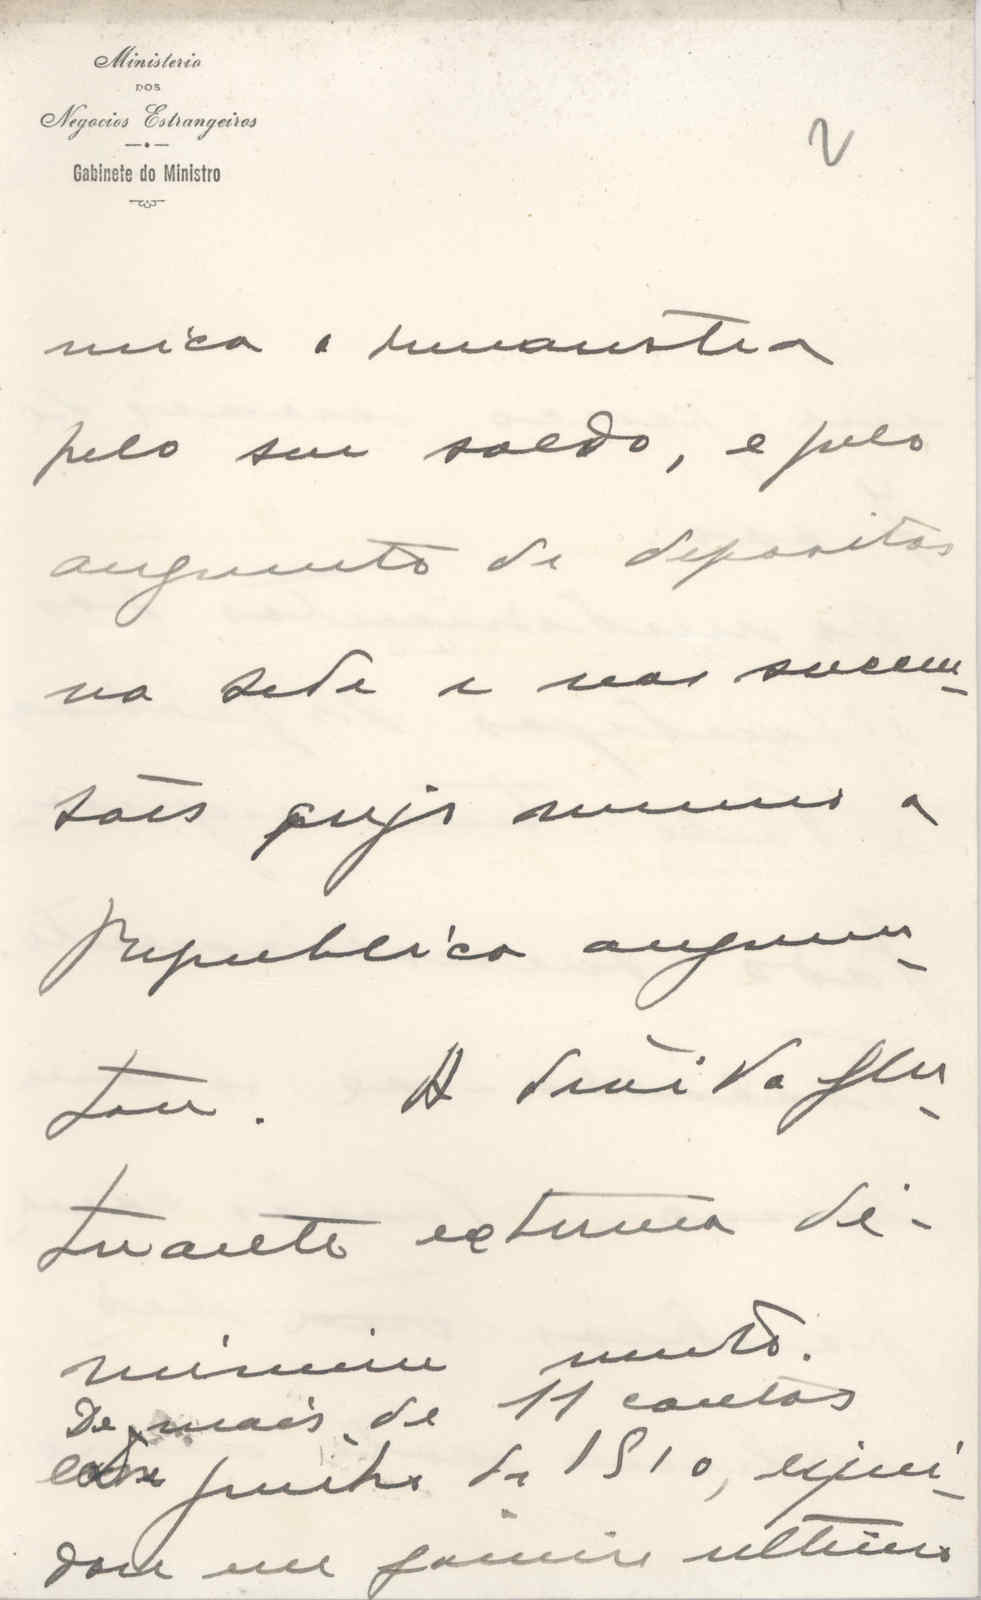 Ministerio
DOS
Negocios Estrangeiros
Gabinete do Ministro
2
mica
pelo seu saldo, e pelo
augmento de depositos
na sede e nas sucum-
sões cujo numero a
Republica augmen-
tou. A divida flu-
tuante externa di-
minuiu muito.
De mais de 11 contos
em junho de 1910, equi-
dou em janeiro ultimo